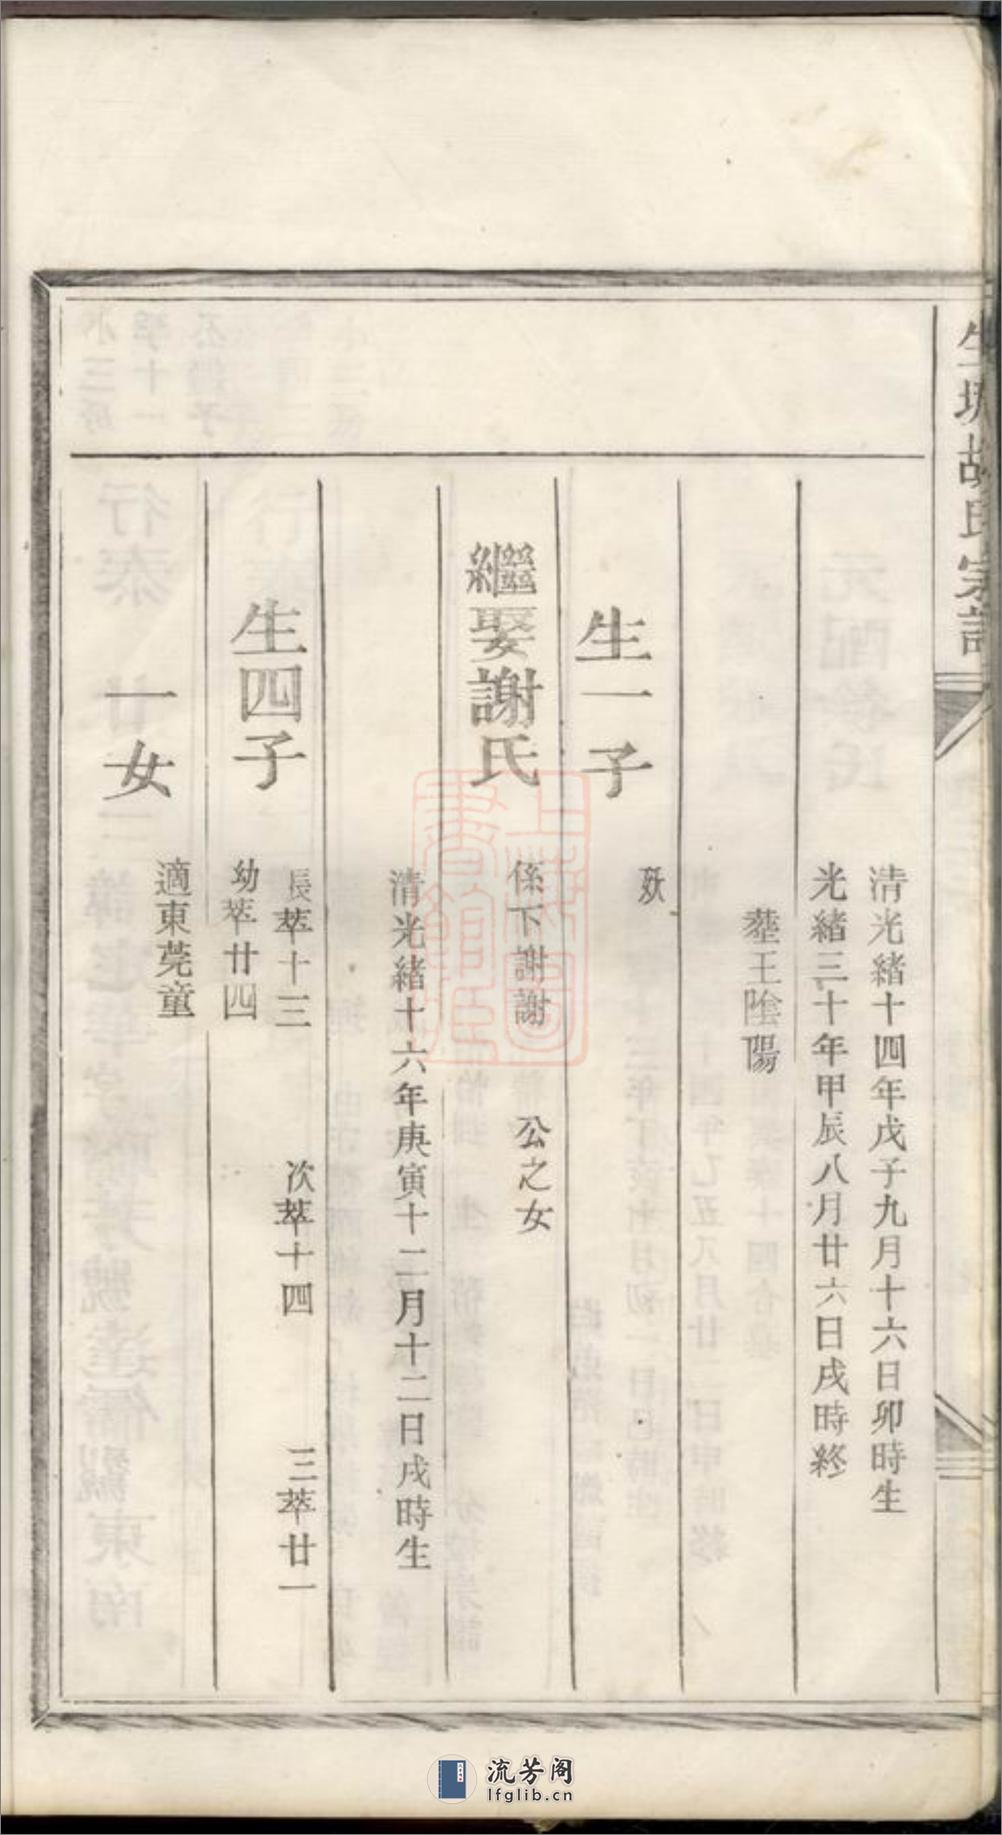 生城胡氏宗譜
清光緒十四年戊子九月十六日卯時生
光緒三十年甲辰八月廿六日戌時終
塟王陰陽
生一子
殀
繼娶謝氏
係下謝謝 公之女
清光緒十六年庚寅十二月十二日戌時生
生四子
長萃十三 次萃十四 三萃廿一
幼萃廿四
一女
適東莞童
上海圖書館藏
流芳阁
lfglib.cn